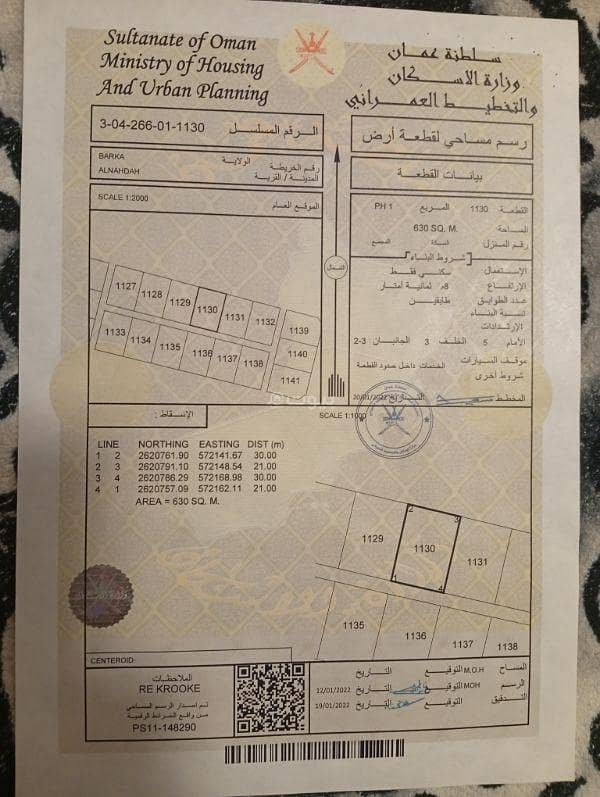 Sultanate of Oman
Ministry of Housing
And Urban Planning
سلطنة عمان
وزارة الاسكان
والتخطيط العمراني
3-04-266-01-1130 الرقم المسلسل
رسم مساحي لقطعة أرض
BARKA الولاية
ALNAHDAH
رقم الخريطة
المدينة / القرية
بيانات القطعة
SCALE 1:2000 الموقع العام
القطعة 1130 المربع PH 1
المساحة 630 SQ. M.
رقم المنزل السكة المجمع
شروط البناء
الإستعمال سكني فقط
الإرتفاع 8م ثمانية أمتار
عدد الطوابق طابقين
نسبة البناء
الإرتدادات
الأمام 5 الخلف 3 الجانبان 2-3
موقف السيارات الخدمات داخل حدود القطعة
شروط أخرى
المخطط التاريخ 20/01/2022
الشمال
1127
1128
1129
1130
1131
1132
1139
1133
1134
1135
1136
1137
1138
1140
1141
الإسقاط :
SCALE 1:1000
LINE NORTHING EASTING DIST (m)
1 2 2620761.90 572141.67 30.00
2 3 2620791.10 572148.54 21.00
3 4 2620786.29 572168.98 30.00
4 1 2620757.09 572162.11 21.00
AREA = 630 SQ. M.
2
3
1129
1130
1131
1
4
1135
1136
1137
1138
CENTEROID:
الملاحظات
RE KROOKE
تم اصدار الرسم المساحي
من واقع الخرائط الرقمية
PS11-148290
المساح M.O.H التوقيع التاريخ
الرسم MOH التوقيع التاريخ 12/01/2022
التدقيق التوقيع التاريخ 19/01/2022